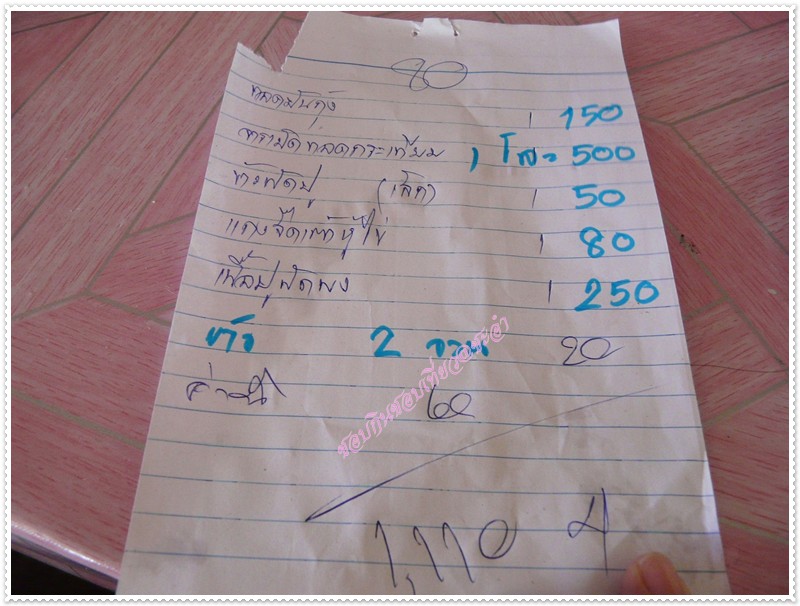 90
ทอดมันกุ้ง 1 150
ทอดกระเทียม 1 โล = 500
ข้าวผัดปู (เล็ก) 1 50
แกงจืดเต้าหู้ไข่ 1 80
เนื้อปูผัดผง 1 250
ข้าว 2 จาน 20
ค่าน้ำ 60
1,110
ชอบกินชอบเที่ยว